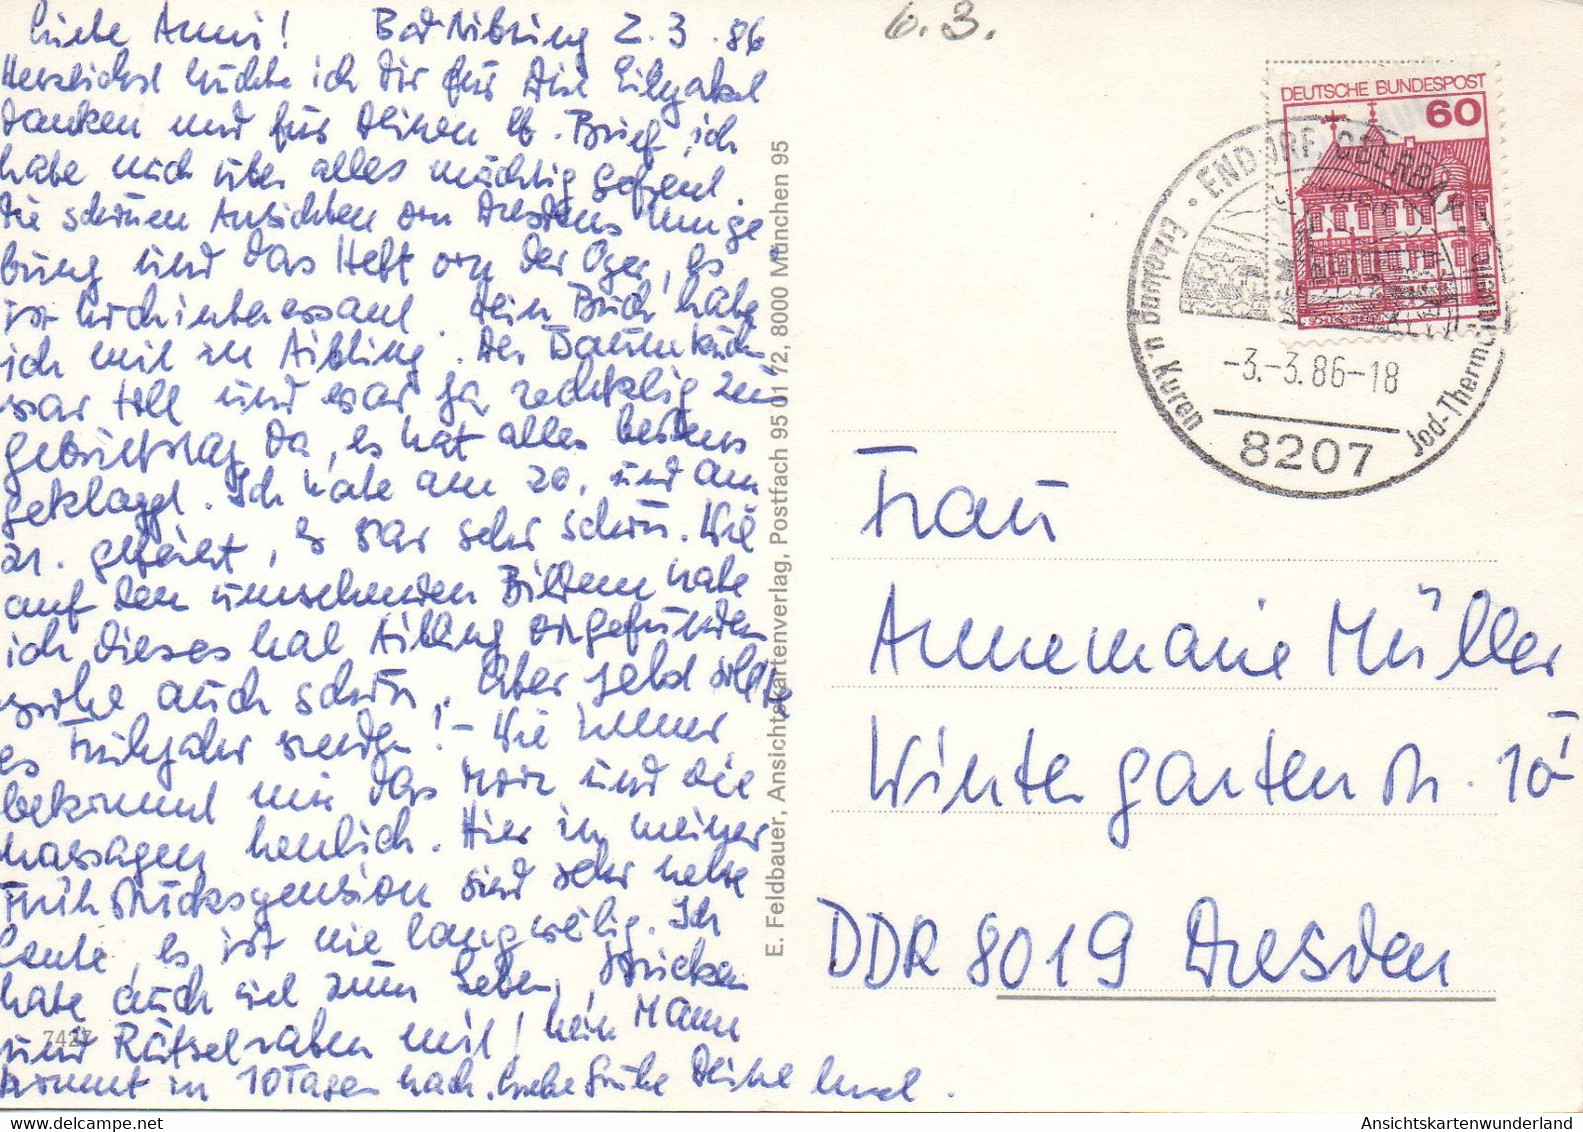 Liebe Anni! Bad Aibling 2.3.86
Herzlichst möchte ich Dir für Dein
danken und für Deinen lb. Brief, ich
habe mich über alles mächtig gefreut.
Die schönen Ansichten von Dresdens Umge
bung und das Heft von der Oper, es
ist hochinteressant. Dein Buch habe
ich mit in Aibling. Der Baumkuchen
war toll und war ja rechtzeitig zum
Geburtstag da, es hat alles bestens
geklappt. Ich habe am 20. und am
21. gefeiert, es war sehr schön. Wie
auf den umsehenden Bildern habe
ich dieses Mal Aibling vorgefunden
weiß auch schön. Aber jetzt sollte
es Frühjahr werden! – Wie immer
bekommt mir das Moor und die
Massagen herrlich. Hier in meiner
Frühstückspension sind sehr nette
Leute, es ist nie langweilig. Ich
habe auch viel zum Lesen, Stricken
und Rätselraten mit! Mein Mann
kommt in 10 Tagen nach. Liebe Grüße Deine
6.3.
DEUTSCHE BUNDESPOST
60
ENDORF OBERBAY
Erholung u. Kuren
Jod-Thermal
-3.-3.86-18
8207
E. Feldbauer, Ansichtskartenverlag, Postfach 95 01 72, 8000 München 95
Frau
Annemarie Müller
Wintergartenstr. 10
DDR 8019 Dresden
7427
Ansichtskartenwunderland